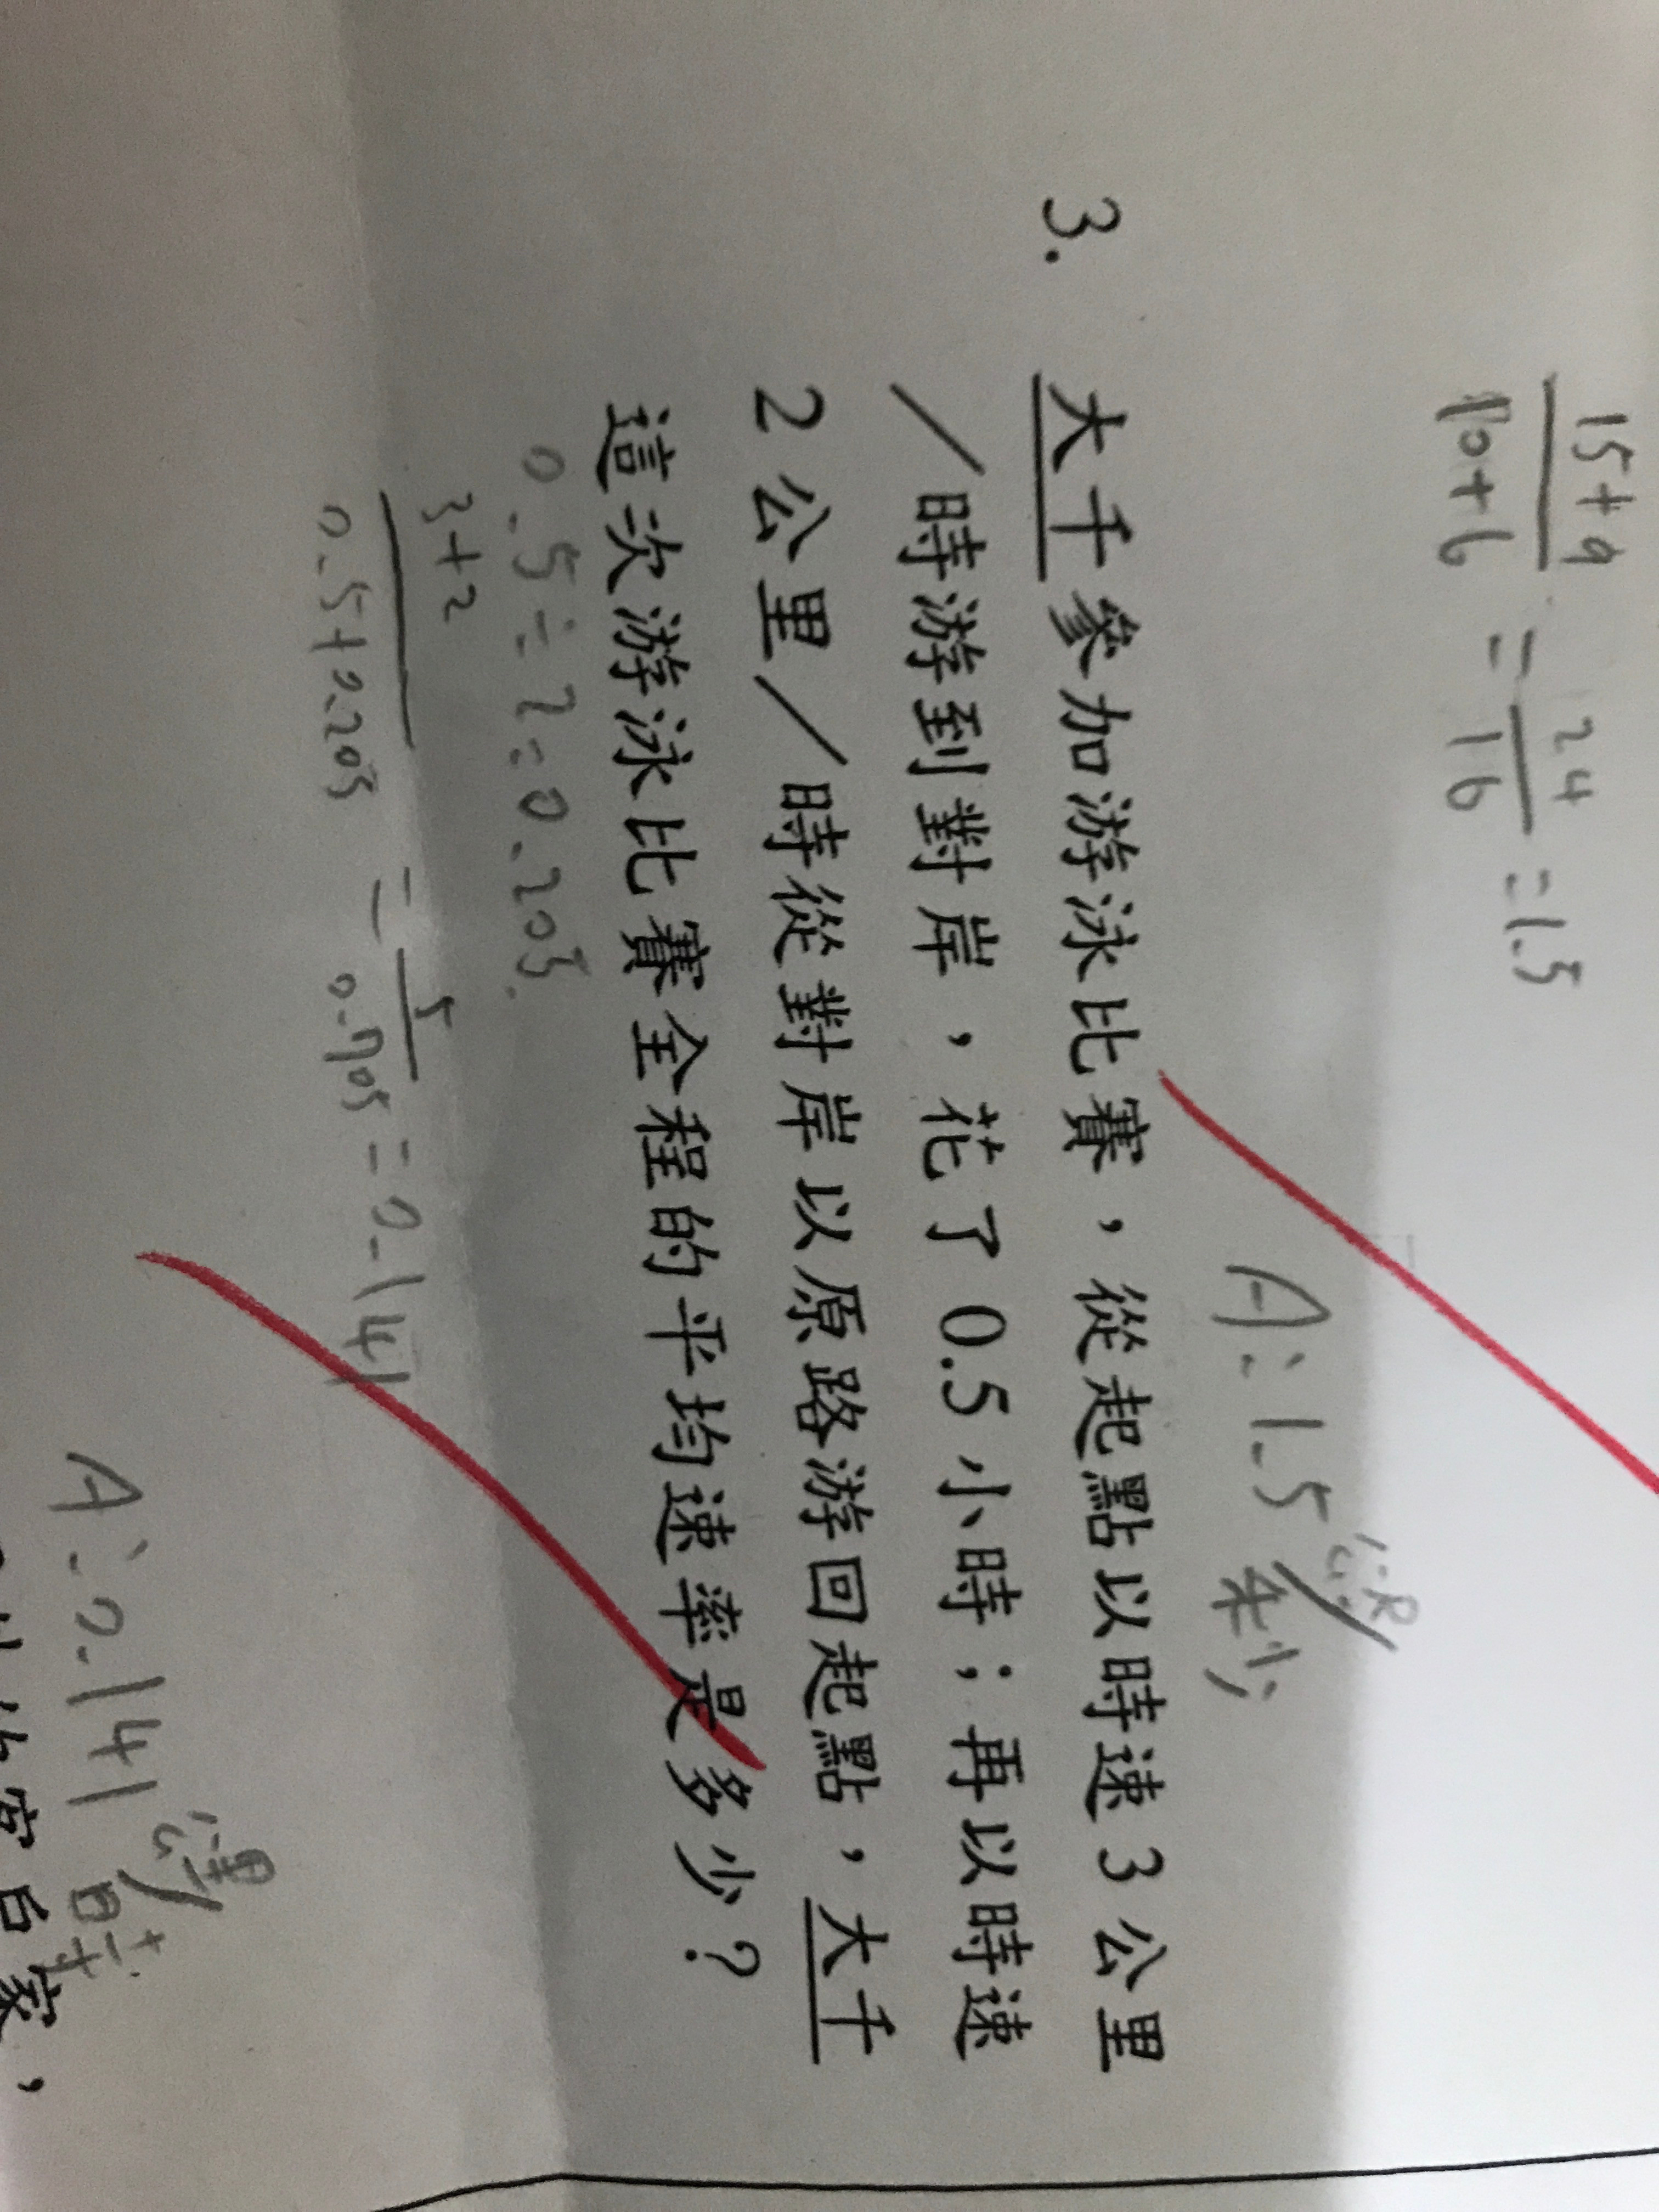 15+9
10+6
=
24
16
=1.5
A:1.5
公尺
秒
3. 大千參加游泳比賽，從起點以時速3公里
／時游到對岸，花了0.5小時；再以時速
2公里／時從對岸以原路游回起點，大千
這次游泳比賽全程的平均速率是多少？
0.5÷2=0.205
3+2
0.5+0.205
=
5
0.705
=0.141
A:0.141
公里
時